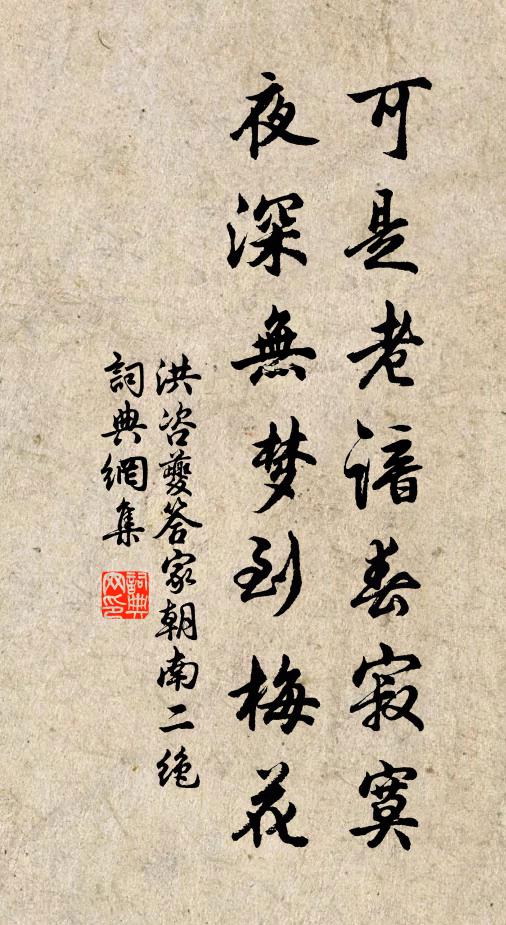 可是老諳春寂寞
夜深無梦到梅花
洪咨夔答家朝南二绝
詞典網集
詞典網印